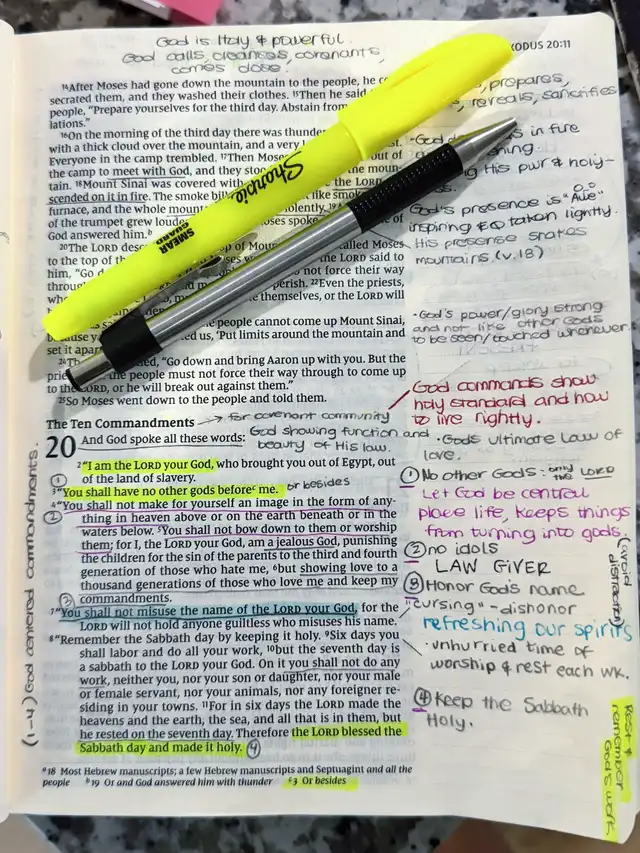 God is Holy & powerful.
God calls, cleanses, covenants,
comes close.
EXODUS 20:11
14After Moses had gone down the mountain to the people, he
secrated them, and they washed their clothes. 15Then he said
people, “Prepare yourselves for the third day. Abstain from
lations.”
16On the morning of the third day there was thunder
with a thick cloud over the mountain, and a very
Everyone in the camp trembled. 17Then Moses out of
the camp to meet with God, and they stood the moun-
tain. 18Mount Sinai was covered with the LORD
scended on it in fire. The smoke like smoke
furnace, and the whole olently.
of the trumpet grew louder oses spoke of
God answered him.b
20The LORD desc op of Mou alled Moses
to the top of th the LORD said to
him, “Go d not force their way
throu perish. 22Even the priests,
who themselves, or the LORD will
people cannot come up Mount Sinai,
us, ‘Put limits around the mountain and
set it apart
24Th “Go down and bring Aaron up with you. But the
the people must not force their way through to come up
to the LORD, or he will break out against them.”
25So Moses went down to the people and told them.
The Ten Commandments
20 And God spoke all these words:
2“I am the LORD your God, who brought you out of Egypt, out
of the land of slavery.
3“You shall have no other gods beforec me.
4“You shall not make for yourself an image in the form of any-
thing in heaven above or on the earth beneath or in the
waters below. 5You shall not bow down to them or worship
them; for I, the LORD your God, am a jealous God, punishing
the children for the sin of the parents to the third and fourth
generation of those who hate me, 6but showing love to a
thousand generations of those who love me and keep my
commandments.
7“You shall not misuse the name of the LORD your God, for the
LORD will not hold anyone guiltless who misuses his name.
8“Remember the Sabbath day by keeping it holy. 9Six days you
shall labor and do all your work, 10but the seventh day is
a sabbath to the LORD your God. On it you shall not do any
work, neither you, nor your son or daughter, nor your male
or female servant, nor your animals, nor any foreigner re-
siding in your towns. 11For in six days the LORD made the
heavens and the earth, the sea, and all that is in them, but
he rested on the seventh day. Therefore the LORD blessed the
Sabbath day and made it holy.
a18 Most Hebrew manuscripts; a few Hebrew manuscripts and Septuagint and all the
people b19 Or and God answered him with thunder c3 Or besides
Sharpie
SMEAR
GUARD
prepares,
reveals, sanctifies
·God in fire
His pwr & holy-
God's presence is "Awe"
inspiring & taken lightly.
His presense shakes
mountains. (v.18)
·God's power/glory strong
and not like other Gods
to be seen/touched whenever.
God commands show
holy standard and how
to live rightly.
for covenant community
God showing function and
beauty of His law.
·Gods ultimate Law of
love.
or besides
1
2
3
4
① No other Gods: only the LORD
Let God be central
place life, keeps things
from turning into gods.
(avoid distraction)
② no idols
LAW GIVER
③ Honor God's name
"cursing" - dishonor
refreshing our spirits
·unhurried time of
worship & rest each wk.
④ Keep the Sabbath
Holy.
Rest &
remember
God's work
(1-4) God centered commandments.